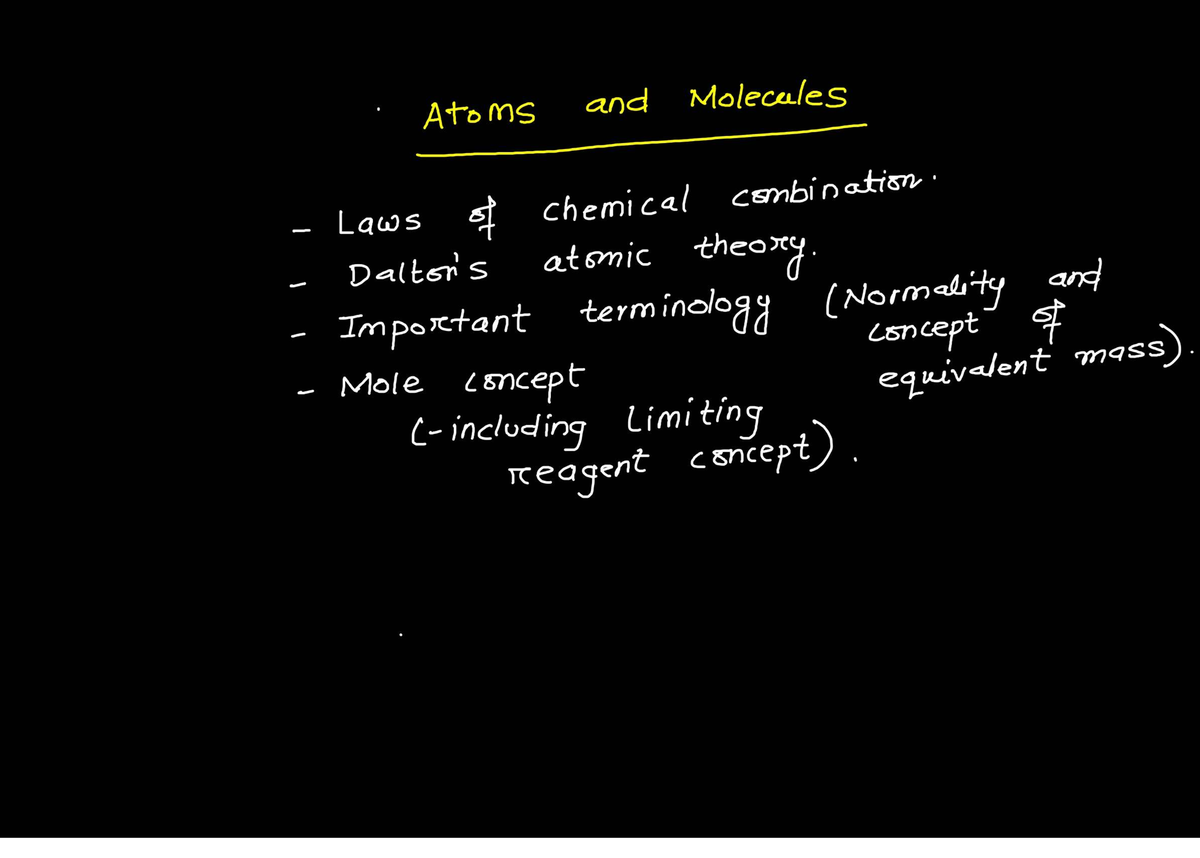 Atoms and Molecules
- Laws of chemical combination.
- Dalton's atomic theory.
- Important terminology (Normality and
concept of
equivalent mass).
- Mole concept
(-including Limiting
reagent concept).